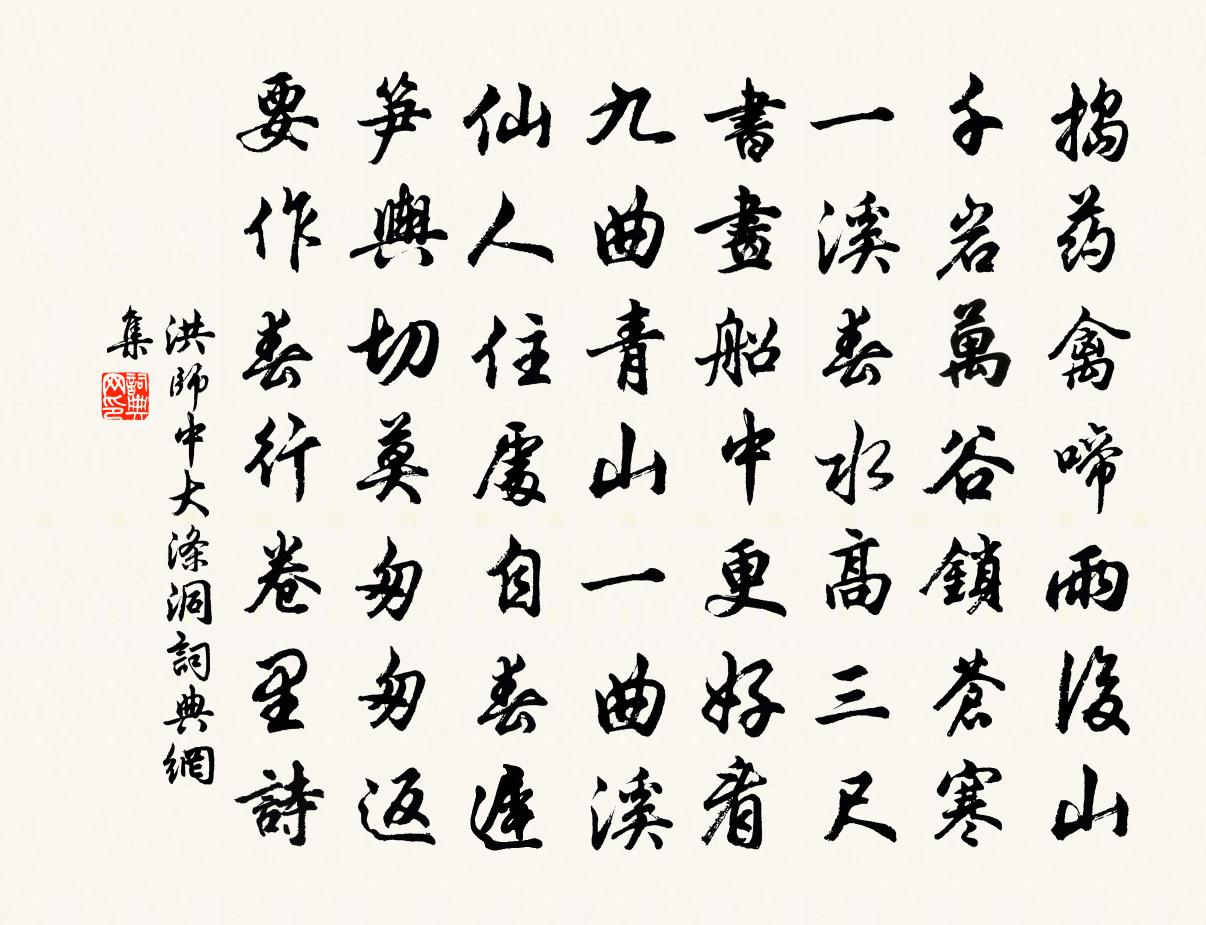 搗药禽啼雨後山
千岩萬谷鎖蒼寒
一溪春水高三尺
書畫船中更好看
九曲青山一曲溪
仙人住處自春遲
笋輿切莫匆匆返
要作春行卷里詩
洪師中大滌洞詞典網
集
詞典网印